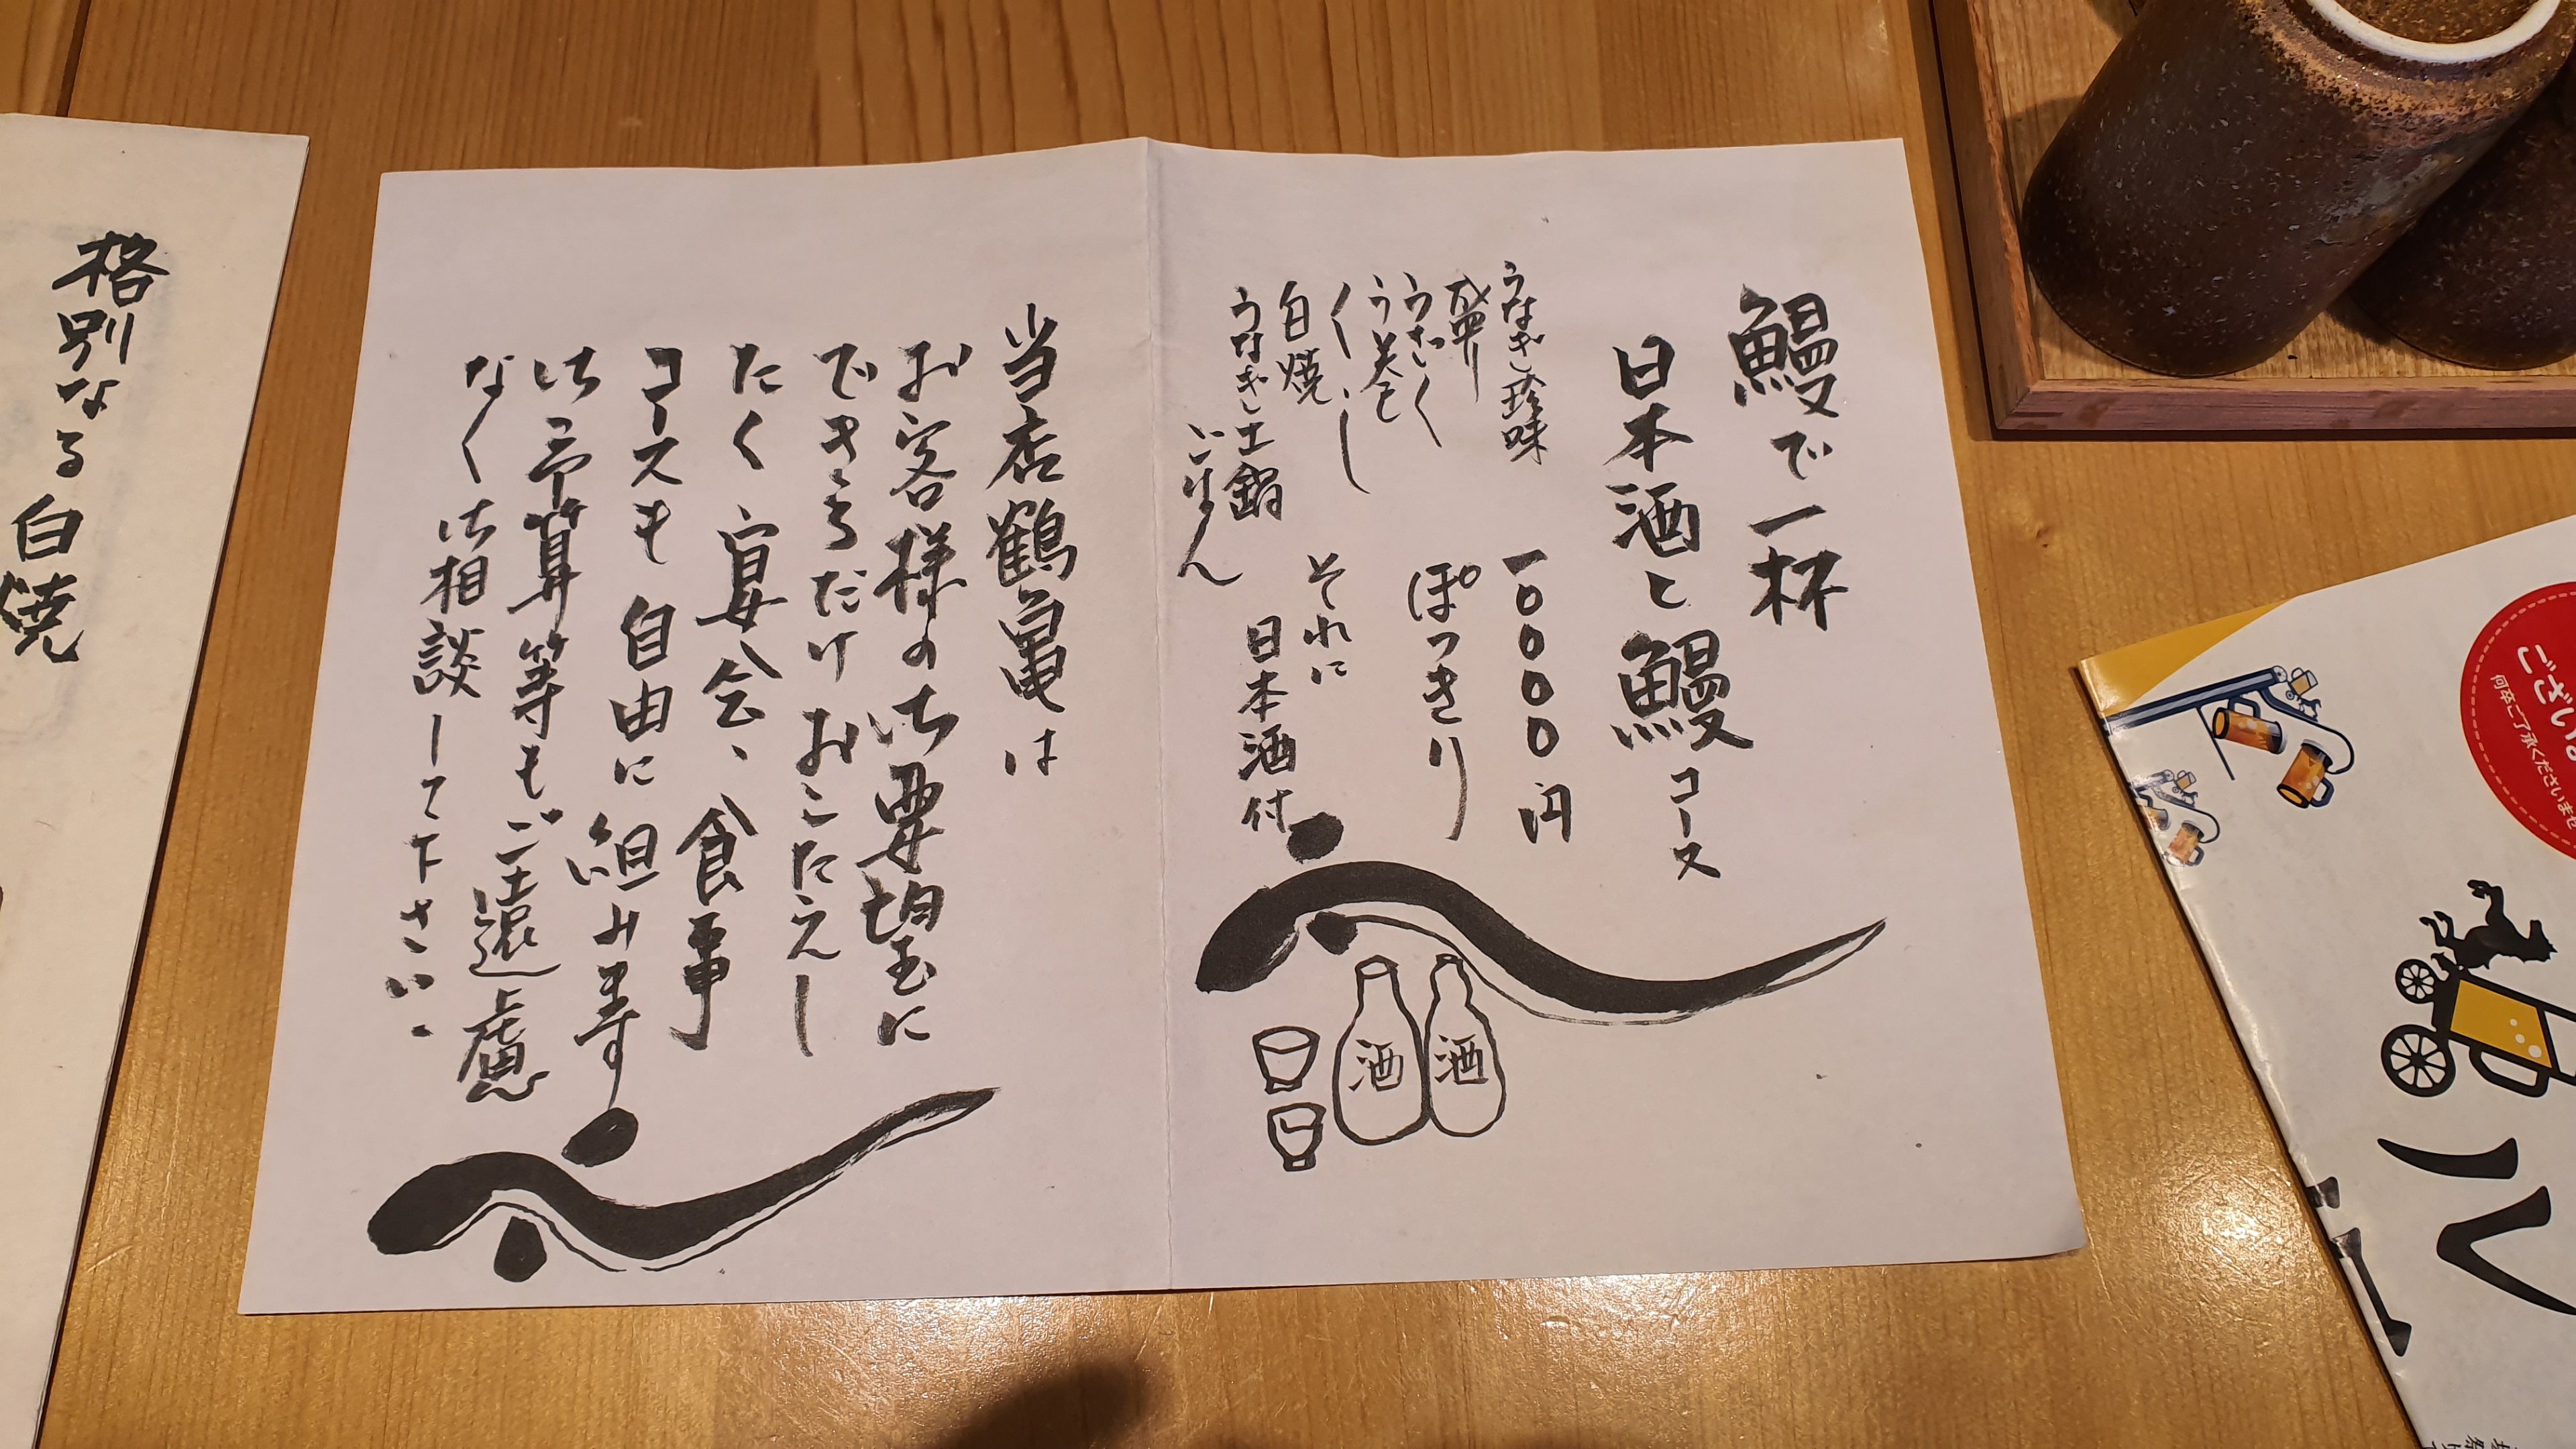 鰻で一杯
日本酒と鰻コース
一〇〇〇〇円
ぽっきり
うなぎ珍味
盛り
うざく
う巻き
くし
白焼
うなぎ土鍋
ごはん
それに
日本酒付
酒
酒
当店鶴亀は
お客様の御要望に
できるだけおこたえし
たく宴会、食事
コースも自由に組み〼す
御予算等もご遠慮
なく御相談して下さい。
格別なる白焼
何卒ご了承くださいませ